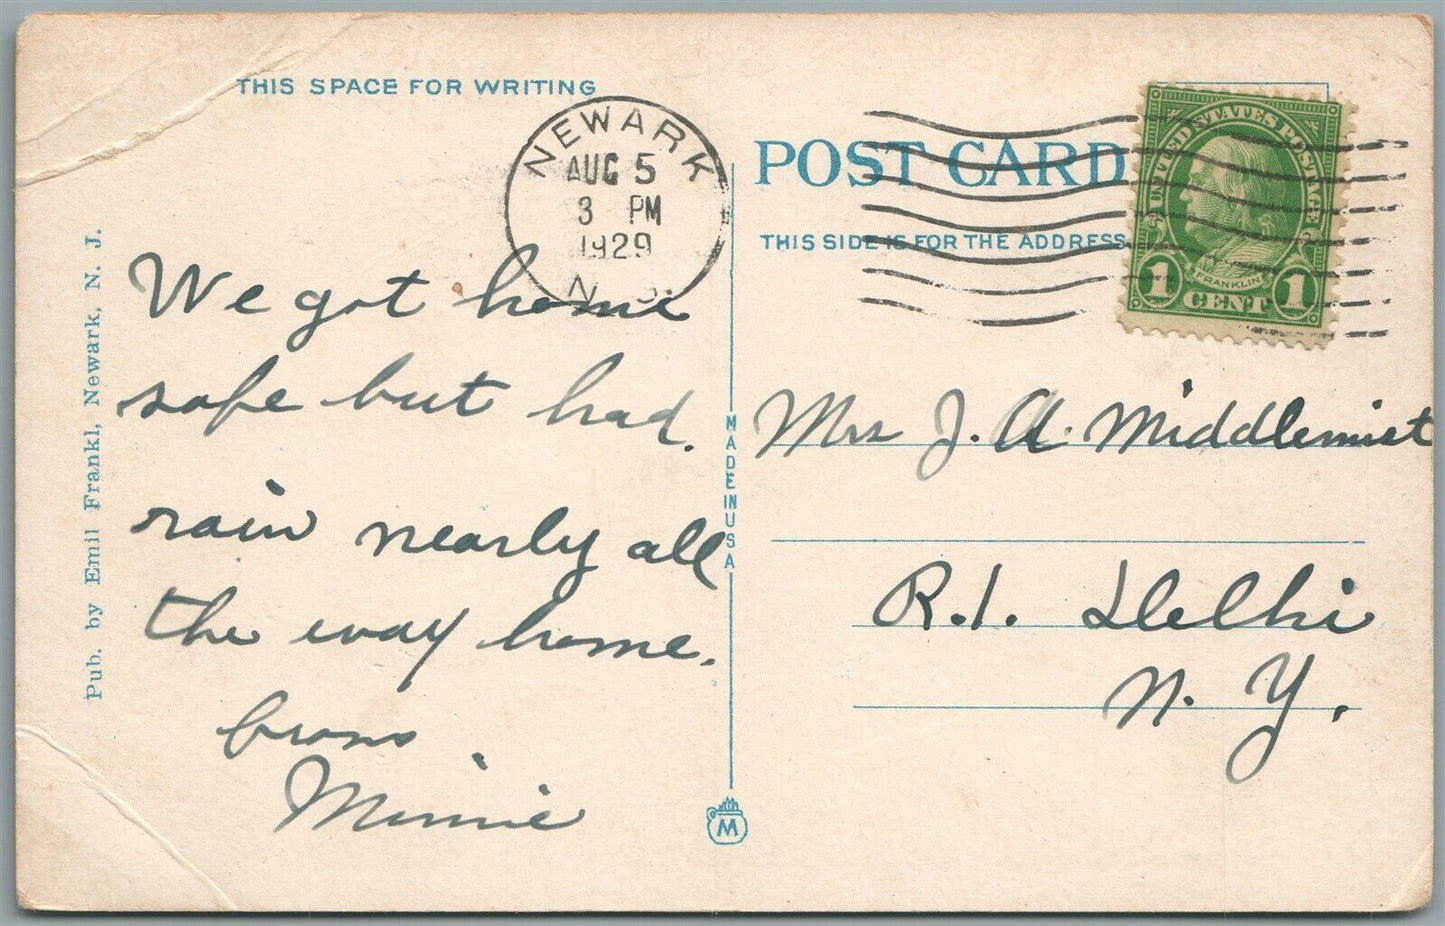 THIS SPACE FOR WRITING
NEWARK
AUG 5
3 PM
1929
N. J.
We got home
safe but had.
rain nearly all
the way home.
from
Minnie
Pub. by Emil Frankl, Newark, N. J.
MADE IN USA
M
POST CARD
THIS SIDE IS FOR THE ADDRESS
UNITED STATES POSTAGE
FRANKLIN
1 CENT 1
Mrs J. A. Middlemist
R.1. Delhi
N. Y.